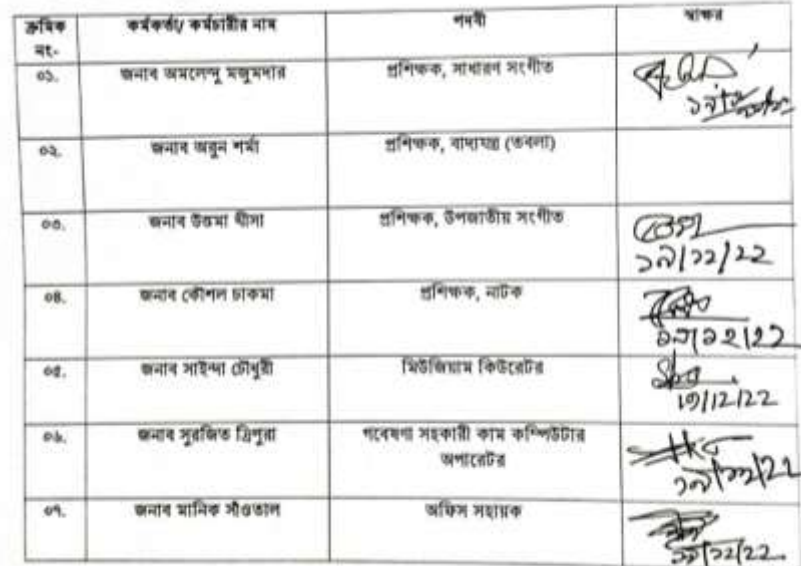 ক্রমিক নং- কর্মকর্তা/ কর্মচারীর নাম পদবী স্বাক্ষর
০১. জনাব অমলেন্দু মজুমদার প্রশিক্ষক, সাধারণ সংগীত
০২. জনাব অরুন শর্মা প্রশিক্ষক, বাদ্যযন্ত্র (তবলা)
০৩. জনাব উত্তমা খীসা প্রশিক্ষক, উপজাতীয় সংগীত
১৯/১২/২২
০৪. জনাব কৌশল চাকমা প্রশিক্ষক, নাটক
১৯/১২/২২
০৫. জনাব সাইন্দা চৌধুরী মিউজিয়াম কিউরেটর
19/12/22
০৬. জনাব সুরজিত ত্রিপুরা গবেষণা সহকারী কাম কম্পিউটার
অপারেটর
১৯/১২/২২
০৭. জনাব মানিক সাঁওতাল অফিস সহায়ক
১৯/১২/২২